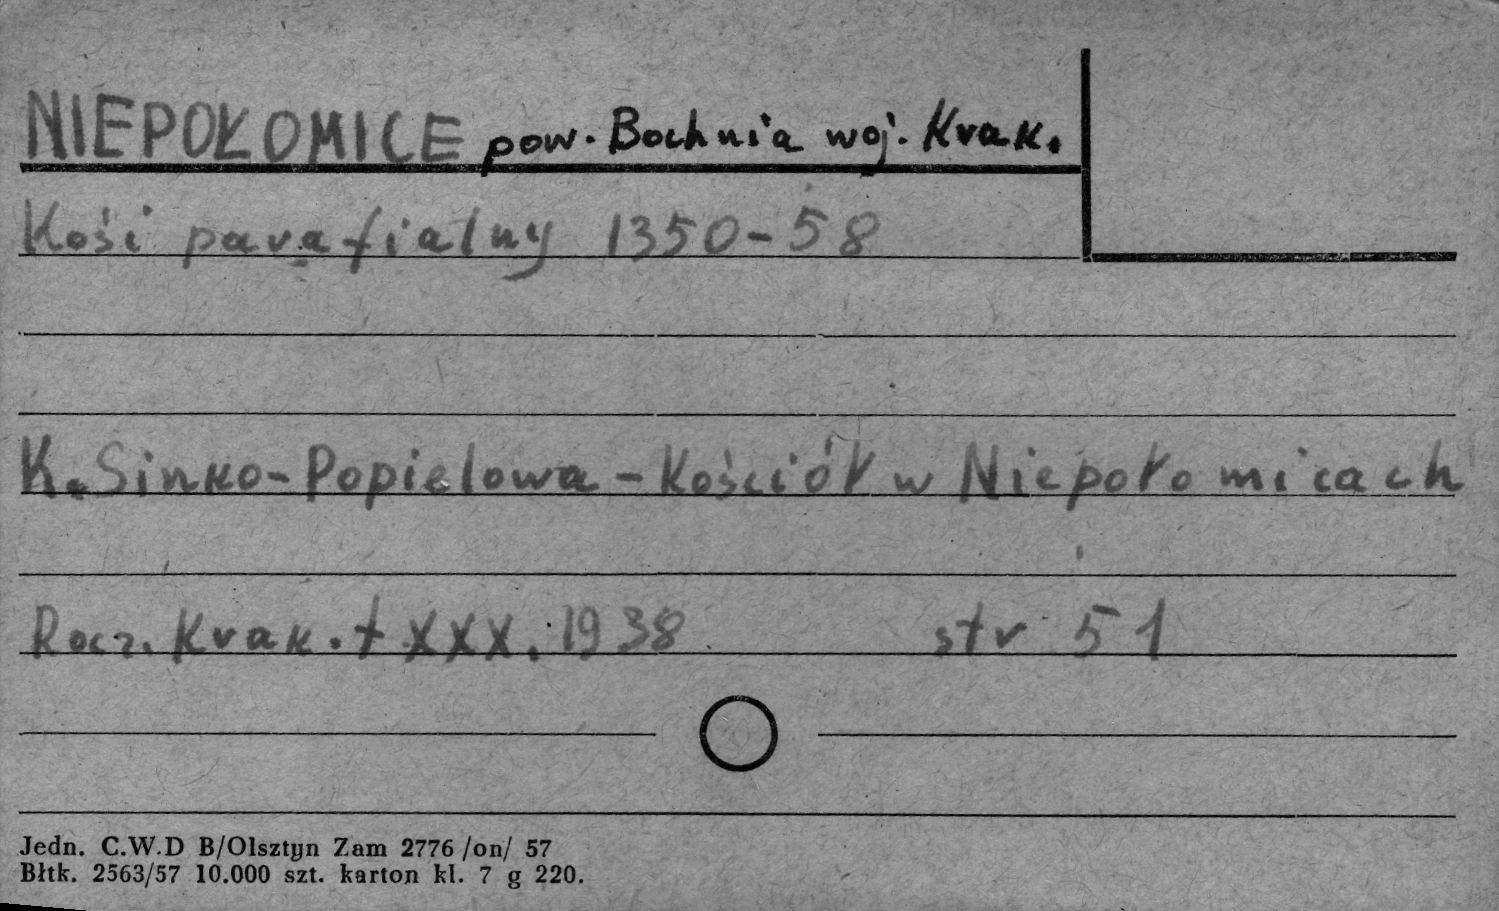 NIEPOŁOMICE pow. Bochnia woj. Krak.
Kośi parafialny 1350-58
K. Sinko-Popielowa - Kościół w Niepołomicach
Rocz. Krak. t XXX. 1938 str 51
Jedn. C.W.D B/Olsztyn Zam 2776 /on/ 57
Błtk. 2563/57 10.000 szt. karton kl. 7 g 220.